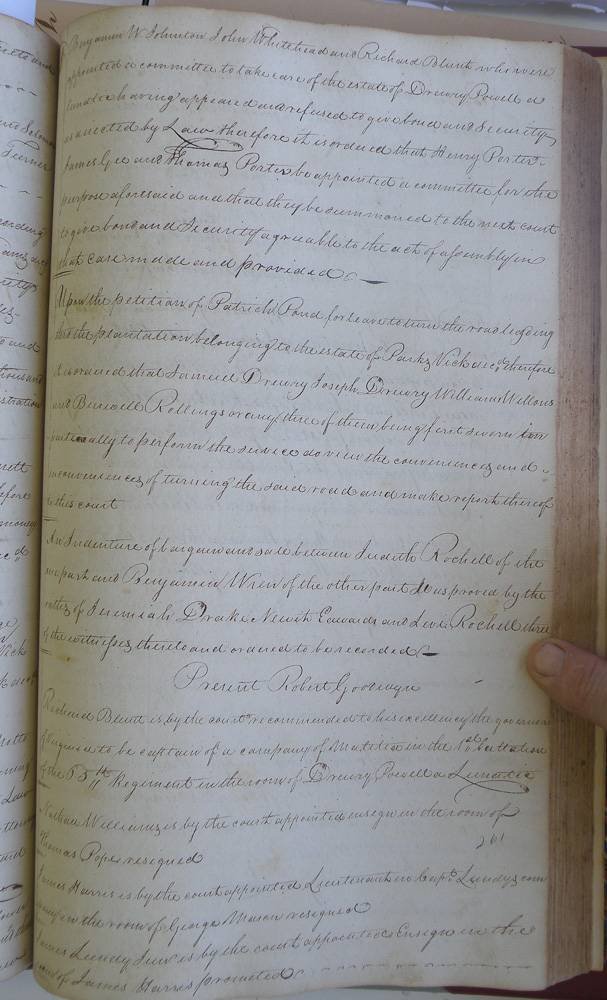 Benjamin W Johnston John Whitehead and Richard Blunt who were
appointed a committee to take care of the estate of Drewry Powell a
lunatic having appeared and refused to give bond and Security
as directed by Law therefore it is ordered that Henry Porter
James Gee and Thomas Porter be appointed a committee for the
purpose aforesaid and that they be summoned to the next court
to give bond and Security agreable to the act of assembly in
that case made and provided
Upon the petition of Patrick Pond for leave to turn the road leading
thro the plantation belonging to the estate of Parks Nick dec.d therefore
it is ordered that Samuel Drewry Joseph Drewry William
and Burwell Rollings or any three of them being first sworn im
partially to perform the service do view the conveniences and
inconveniences of turning the said road and make report thereof
to this court
An Indenture of bargain and sale between Judith Rochell of the
one part and Benjamin Wren of the other part was proved by the
oaths of Jeremiah Drake Newit Edwards and Levi Rochell three
of the witnesses thereto and ordered to be recorded
Present Robert Goodwyn
Richard Blunt is by the court recommended to his excellency the governor
of Virginia to be captain of a company of Militia in the 1st battalion
of the Regiment in the room of Drewry Powell a Lunatic
Nathan Williams is by the court appointed ensign in the room of
Thomas Pope resigned
James Harris is by the court appointed Lieutenant in Capt. Lundys com
pany in the room of George Mason resigned
James Lundy Junr is by the court appointed Ensign in the
room of James Harris promoted